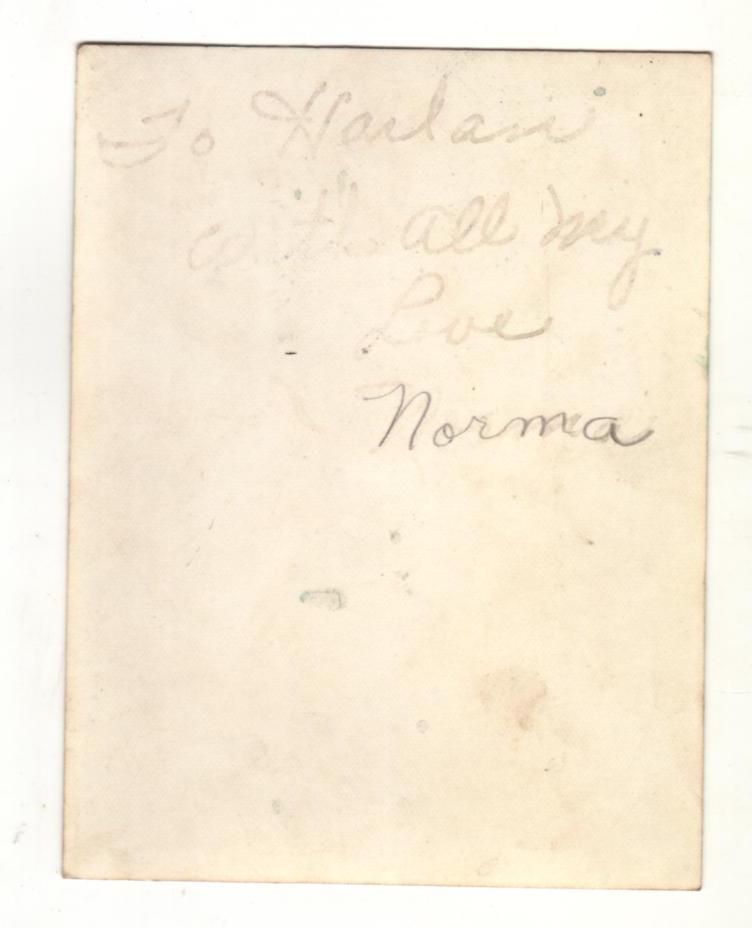 To Harlan
with all my
Love
Norma